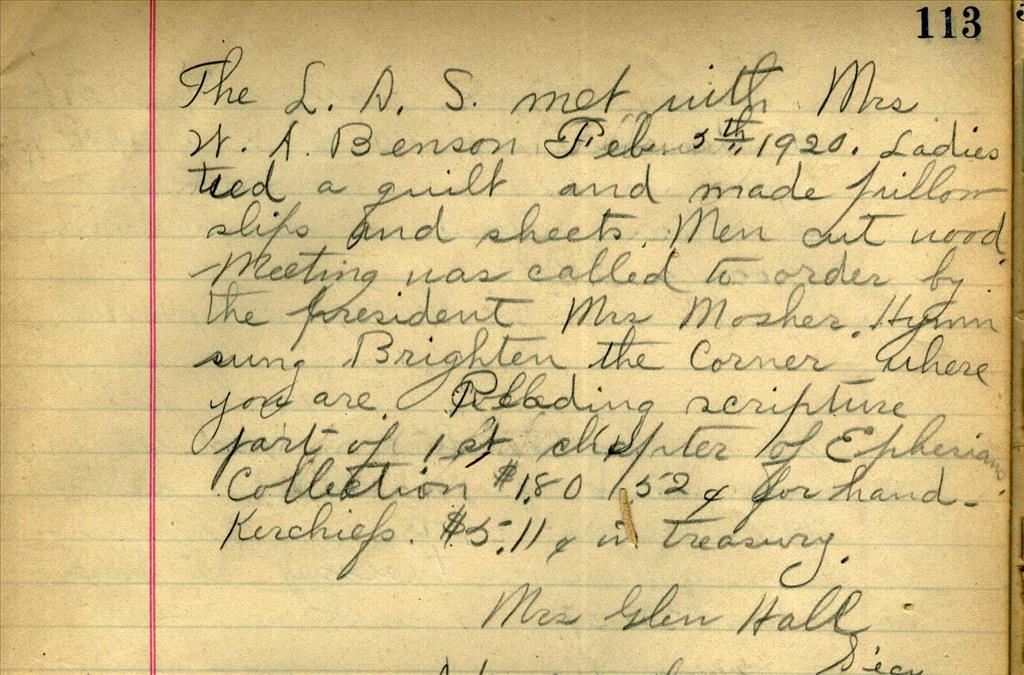 113
The L. A. S. met with Mrs
W. A. Benson Feb 5th 1920. Ladies
tied a quilt and made pillow
slips and sheets. Men cut wood.
Meeting was called to order by
the president Mrs Mosher. Hymn
sung Brighten the Corner where
you are. Reading scripture
part of 1st chapter of Ephesians.
Collection $1.80 .52¢ for hand-
Kerchiefs. $5.11¢ in treasury.
Mrs Glen Hall
Secy